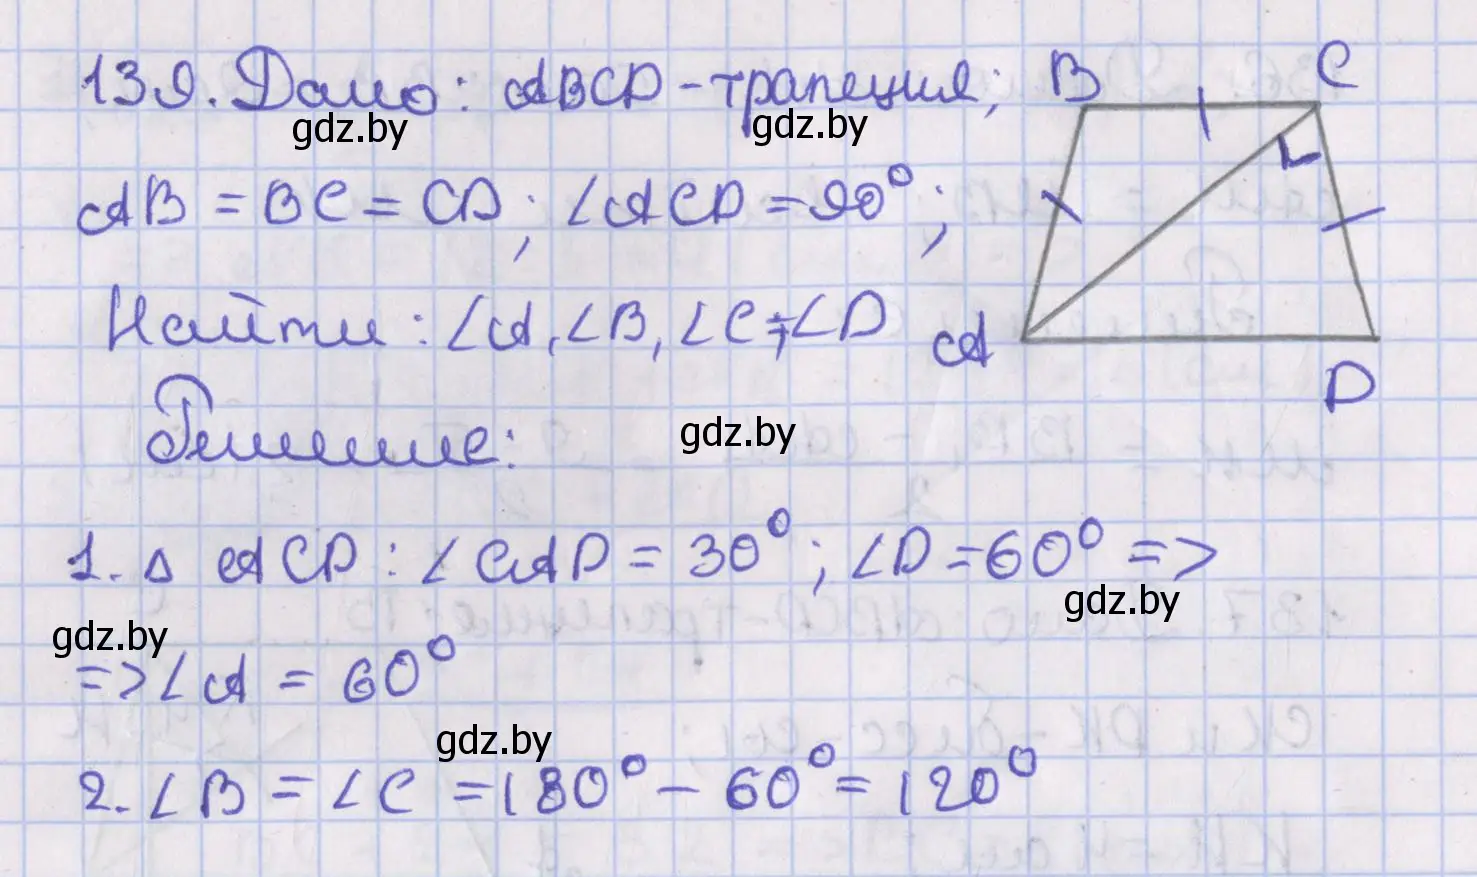 139. Дано: ABCD - трапеция;
AB = BC = CD; ∠ACD = 90°;
Найти: ∠A, ∠B, ∠C, ∠D
Решение:
1. Δ ACD: ∠CAD = 30°; ∠D = 60° =>
=> ∠A = 60°
2. ∠B = ∠C = 180° - 60° = 120°
B
C
A
D
gdz.by
gdz.by
gdz.by
gdz.by
gdz.by
gdz.by